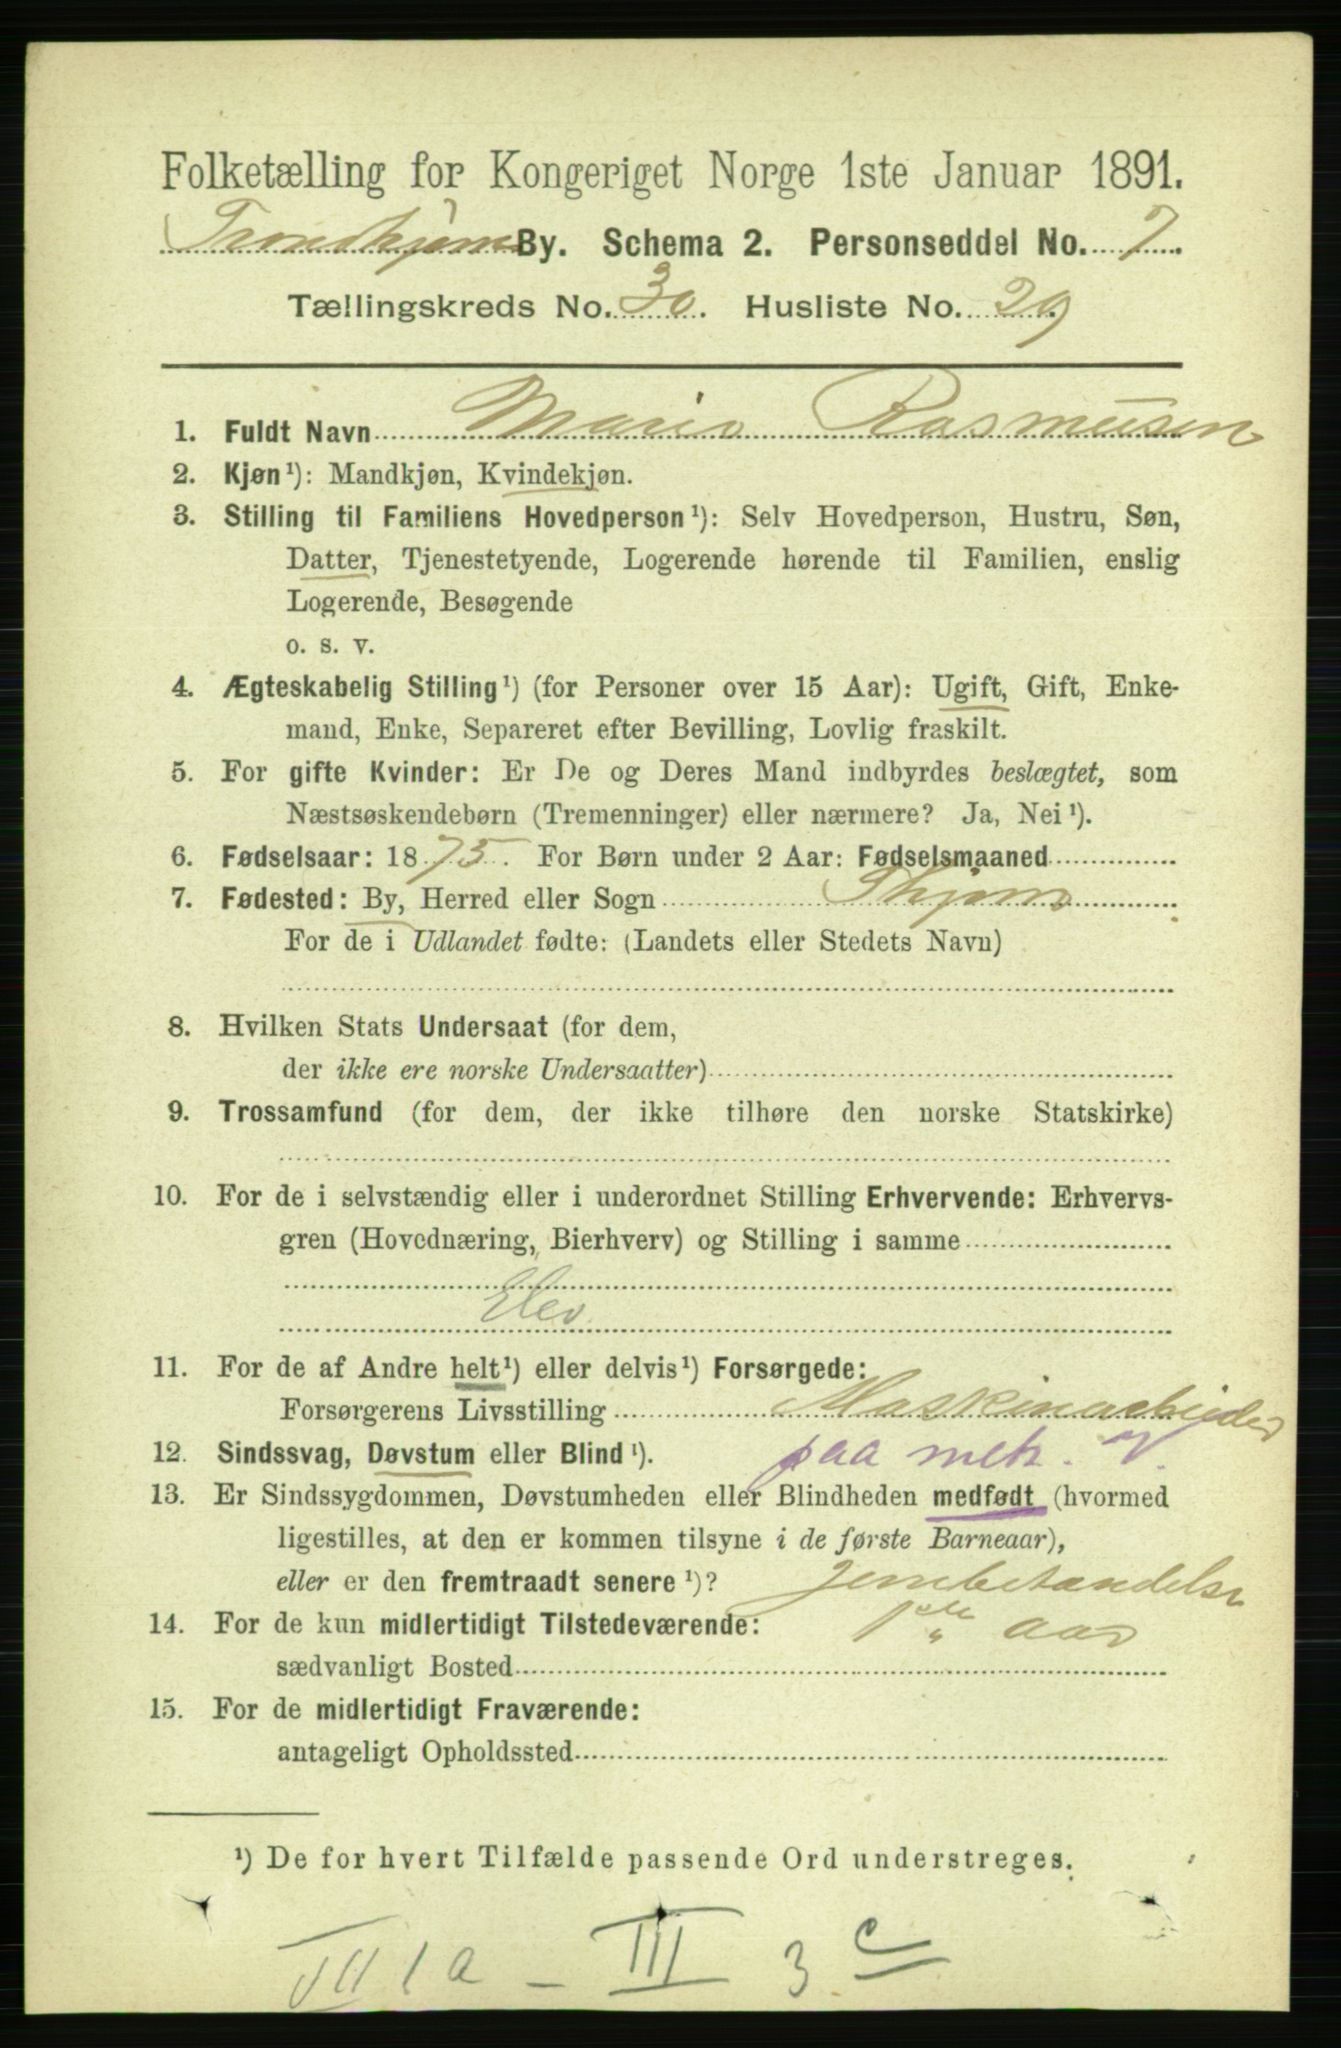 Folketælling for Kongeriget Norge 1ste Januar 1891.
Trondhjems By. Schema 2. Personseddel No. 7.
Tællingskreds No. 30. Husliste No. 29
1. Fuldt Navn Marie Rasmussen
2. Kjøn¹): Mandkjøn, Kvindekjøn.
3. Stilling til Familiens Hovedperson¹): Selv Hovedperson, Hustru, Søn,
Datter, Tjenestetyende, Logerende hørende til Familien, enslig
Logerende, Besøgende
o. s. v.
4. Ægteskabelig Stilling¹) (for Personer over 15 Aar): Ugift, Gift, Enke-
mand, Enke, Separeret efter Bevilling, Lovlig fraskilt.
5. For gifte Kvinder: Er De og Deres Mand indbyrdes beslægtet, som
Næstsøskendebørn (Tremenninger) eller nærmere? Ja, Nei¹).
6. Fødselsaar: 1875. For Børn under 2 Aar: Fødselsmaaned
7. Fødested: By, Herred eller Sogn Thjem
For de i Udlandet fødte: (Landets eller Stedets Navn)
8. Hvilken Stats Undersaat (for dem,
der ikke ere norske Undersaatter)
9. Trossamfund (for dem, der ikke tilhøre den norske Statskirke)
10. For de i selvstændig eller i underordnet Stilling Erhvervende: Erhvervs-
gren (Hovednæring, Bierhverv) og Stilling i samme
Elev
11. For de af Andre helt¹) eller delvis¹) Forsørgede:
Forsørgerens Livsstilling Maskinarbeider
12. Sindssvag, Døvstum eller Blind¹). paa mek. V.
13. Er Sindssygdommen, Døvstumheden eller Blindheden medfødt (hvormed
ligestilles, at den er kommen tilsyne i de første Barneaar),
eller er den fremtraadt senere¹)? Jernbetændelse
14. For de kun midlertidigt Tilstedeværende: 1ste aar
sædvanligt Bosted
15. For de midlertidigt Fraværende:
antageligt Opholdssted
¹) De for hvert Tilfælde passende Ord understreges.
VII 1a - III 3 c